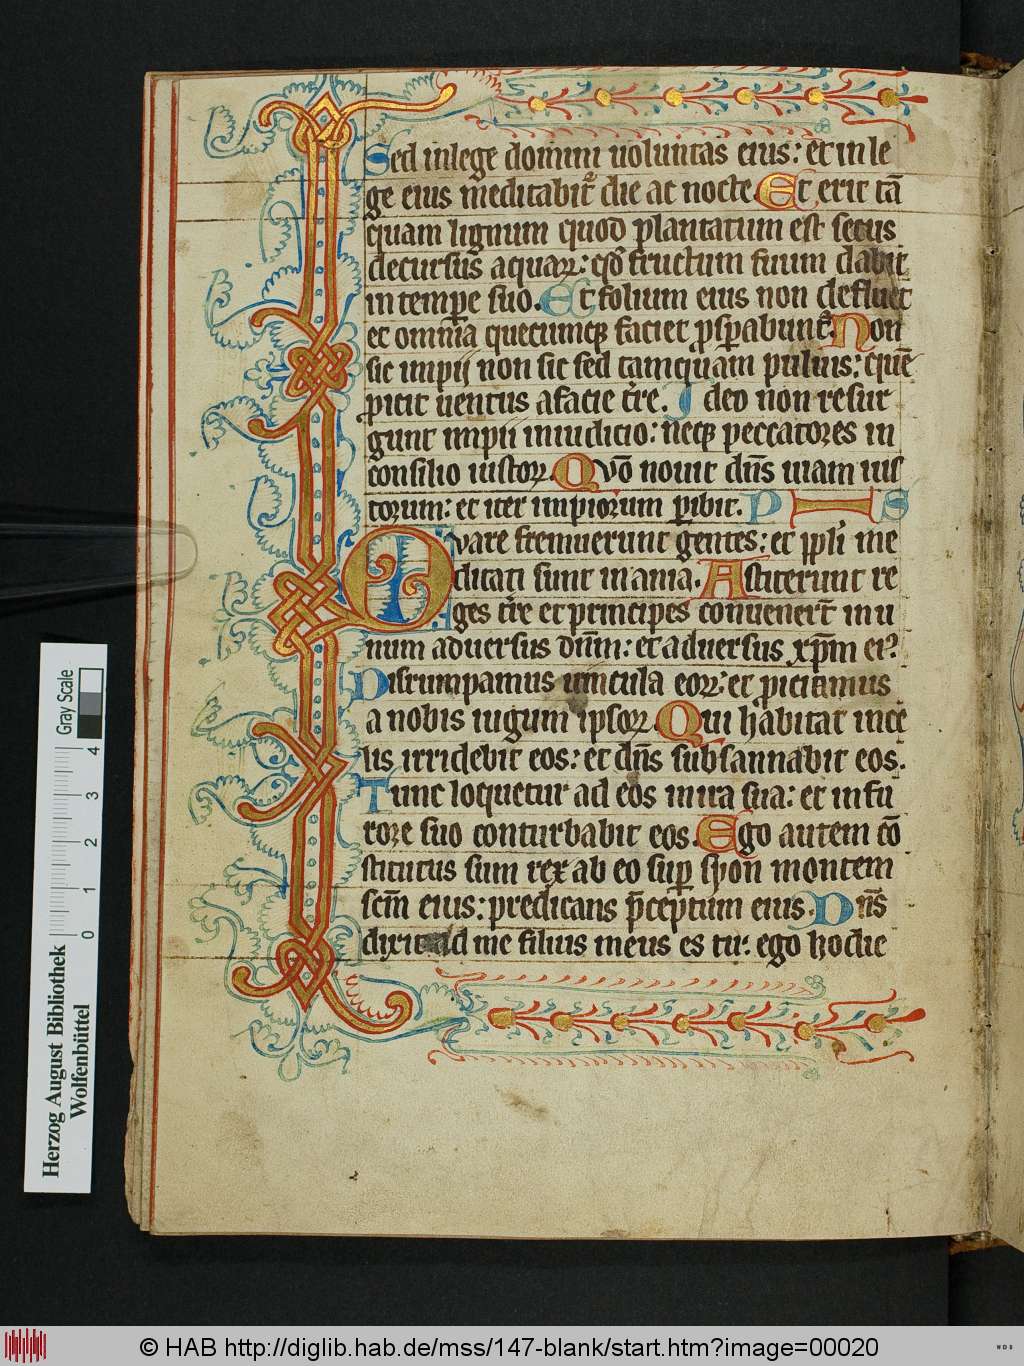 Sed in lege domini uoluntas eius: et in le
ge eius meditabit᷑ die ac nocte. Et erit tā
quam lignum quod plantatum est secus
decursus aquaꝝ: qđ fructum suum dabit
in temꝑe suo. Et folium eius non defluet
et omnia quecumqꝫ faciet ꝓsꝑabunt᷑. Non
sic impij non sic sed tamquam puluis: quē
ꝓicit uentus a facie tr̄e. Ideo non resur
gunt impii in iudicio: neqꝫ peccatores in
consilio iustoꝝ. Qūo nouit dn̄s uiam ius
torum: et iter impiorum ꝑibit. PS
Quare fremuerunt gentes: et ppl̓i me
ditati sunt inania. Astiterunt re
ges tr̄e et principes conuener̄t in u
num aduersus dn̄m: et aduersus xp̄m ei᷒
Disrumpamus uincula eoꝝ: et ꝓiciamus
a nobis iugum ipsoꝝ. Qui habitat in ce
lis irridebit eos: et dn̄s subsannabit eos.
Tunc loquetur ad eos in ira sua: et in fu
rore suo conturbabit eos. Ego autem cō
stitutus sum rex ab eo suꝑ syon montem
sc̄m eius: predicans p̄ceptum eius. Dn̄s
dixit ad me filius meus es tu: ego hodie
Herzog August Bibliothek
Wolfenbüttel
Gray Scale
0 1 2 3 4
© HAB http://diglib.hab.de/mss/147-blank/start.htm?image=00020
HAB